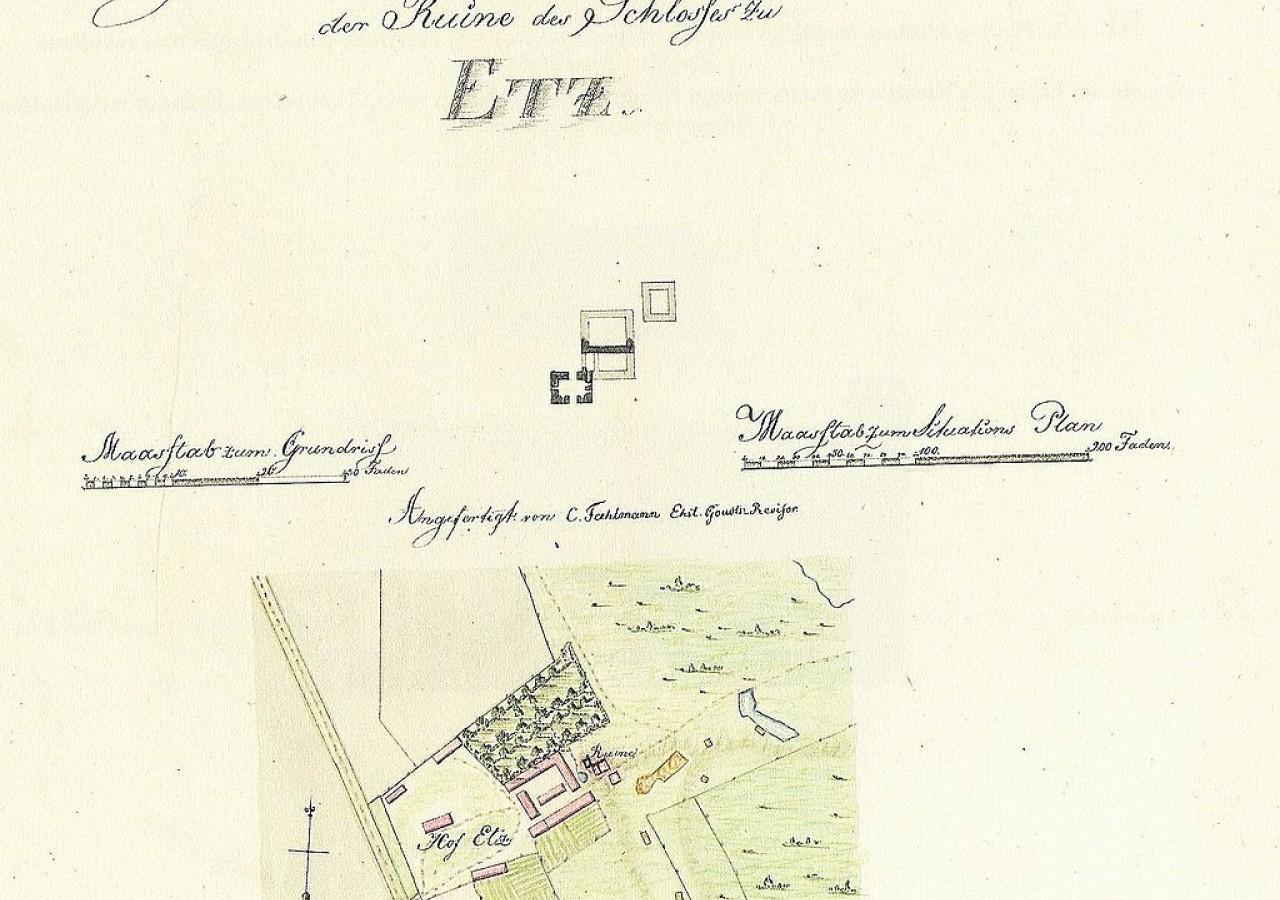 der Ruine des Schlosses zu
Etz.
Maasstab zum Grundriss
10. 20 30 Faden
Maasstab zum Situations Plan
50 100. 200 Faden.
Angefertigt von C. Faehlmann Ehst. Gouvts Revisor
Ruine
Hof Etz